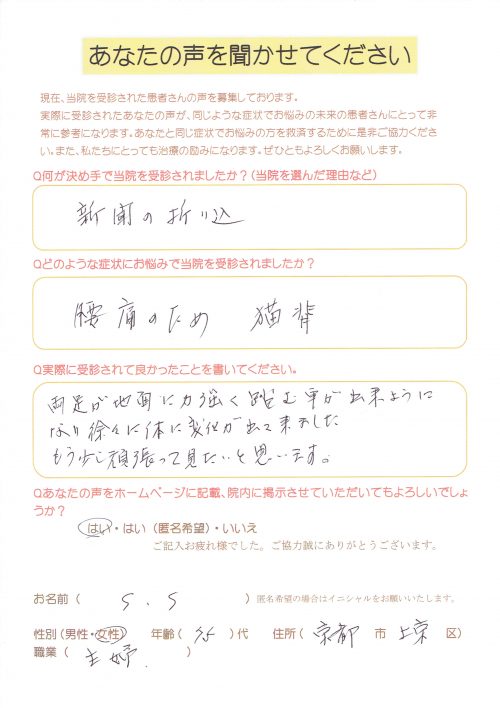 あなたの声を聞かせてください
現在、当院を受診された患者さんの声を募集しております。
実際に受診されたあなたの声が、同じような症状でお悩みの未来の患者さんにとって非
常に参考になります。あなたと同じ症状でお悩みの方を救済するために是非ご協力くださ
い。また、私たちにとっても治療の励みになります。ぜひともよろしくお願いします。
Q何が決め手で当院を受診されましたか？(当院を選んだ理由など)
新聞の折り込
Qどのような症状にお悩みで当院を受診されましたか？
腰痛のため 猫背
Q実際に受診されて良かったことを書いてください。
両足が地面に力強く踏む事が出来ように
なり徐々に体に変化が出て来ました
もう少し頑張って見たいと思います。
Qあなたの声をホームページに記載、院内に掲示させていただいてもよろしいでしょ
うか？
はい・はい（匿名希望）・いいえ
ご記入お疲れ様でした。ご協力誠にありがとうございます。
お名前（ S.S ）匿名希望の場合はイニシャルをお願いいたします。
性別（男性・女性） 年齢（ ）代 住所（ 京都 市 上京 区）
職業（ 主婦 ）